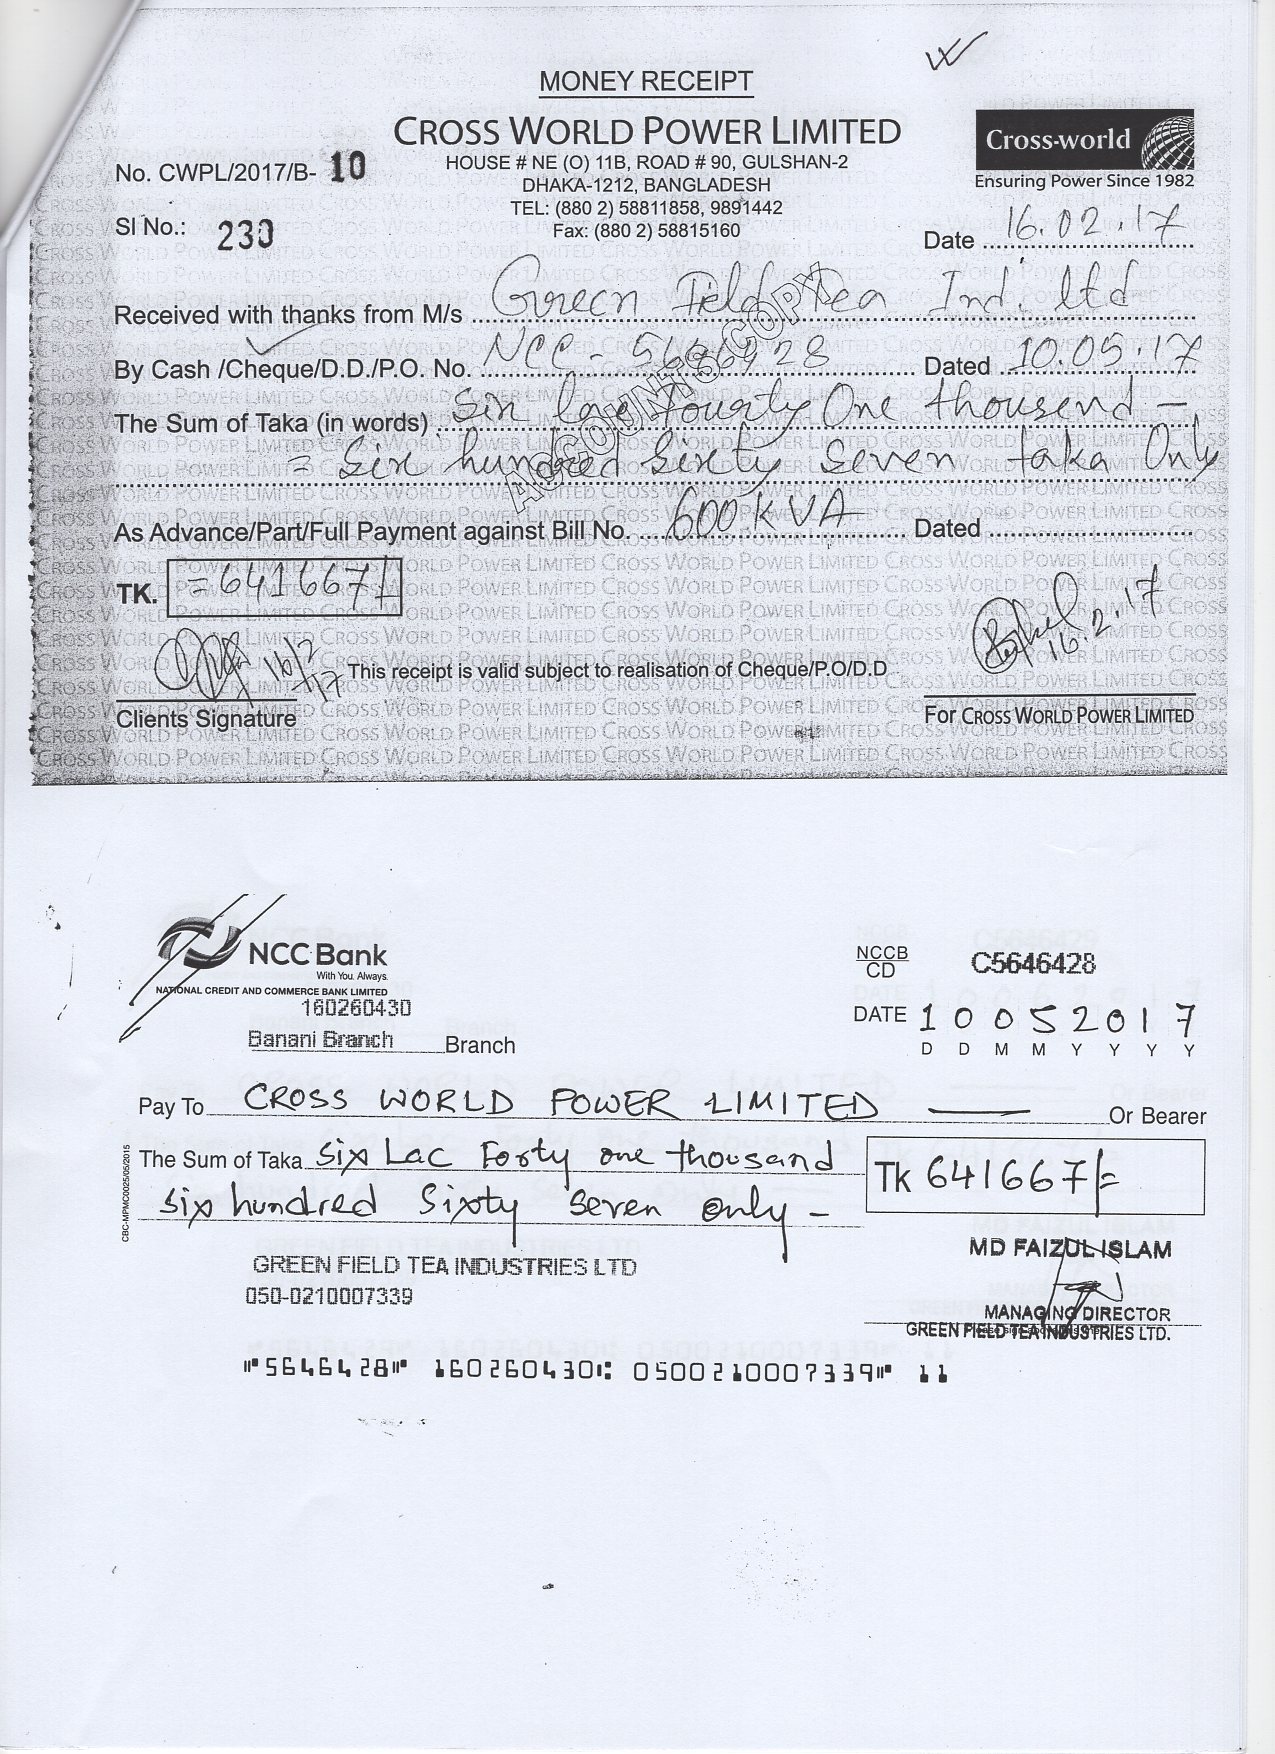 MONEY RECEIPT
CROSS WORLD POWER LIMITED
HOUSE # NE (O) 11B, ROAD # 90, GULSHAN-2
DHAKA-1212, BANGLADESH
TEL: (880 2) 58811858, 9891442
Fax: (880 2) 58815160
Cross-world
Ensuring Power Since 1982
No. CWPL/2017/B- 10
Sl No.: 233
Date 16.02.17
Received with thanks from M/s Green Field Tea Ind. ltd
By Cash /Cheque/D.D./P.O. No. NCC - 5646428 Dated 10.05.17
The Sum of Taka (in words) Six lac Fourty One thousend -
= six hundred Sixty Seven taka Only
ACCOUNTS COPY
As Advance/Part/Full Payment against Bill No. 600 KVA Dated
TK. =641667/=
16/2/17
16.2.17
This receipt is valid subject to realisation of Cheque/P.O/D.D
Clients Signature
For CROSS WORLD POWER LIMITED
NCC Bank
With You. Always.
NATIONAL CREDIT AND COMMERCE BANK LIMITED
160260430
Banani Branch Branch
NCCB
CD
C5646428
DATE 10052017
D D M M Y Y Y Y
Pay To CROSS WORLD POWER LIMITED Or Bearer
The Sum of Taka Six Lac Forty one thousand
Six hundred Sixty Seven only -
Tk 641667/=
CBC-MPMC0025/05/2015
GREEN FIELD TEA INDUSTRIES LTD
050-0210007339
MD FAIZUL ISLAM
MANAGING DIRECTOR
GREEN FIELD TEA INDUSTRIES LTD.
⑈5646428⑈ 160260430⑆ 0500210007339⑈ 11